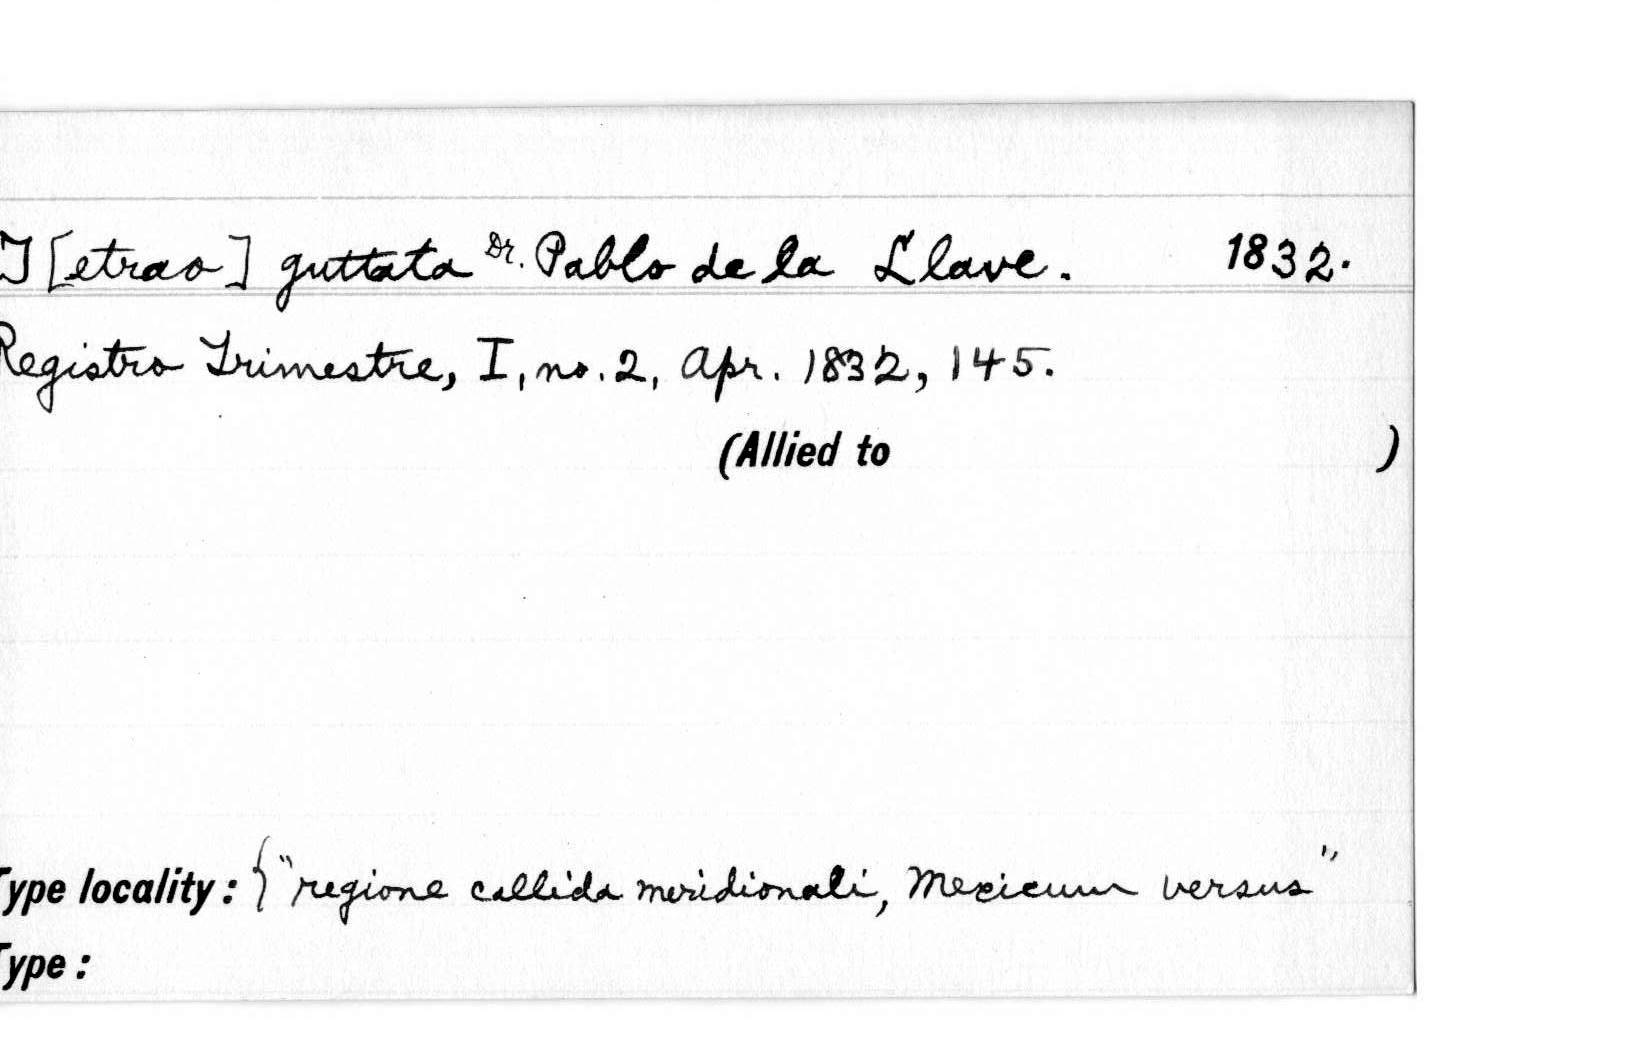 T[etrao] guttata Dr. Pablo de la Llave. 1832.
Registro Trimestre, I, no. 2, Apr. 1832, 145.
(Allied to )
Type locality: {"regione callida meridionali, Mexicum versus"
Type: